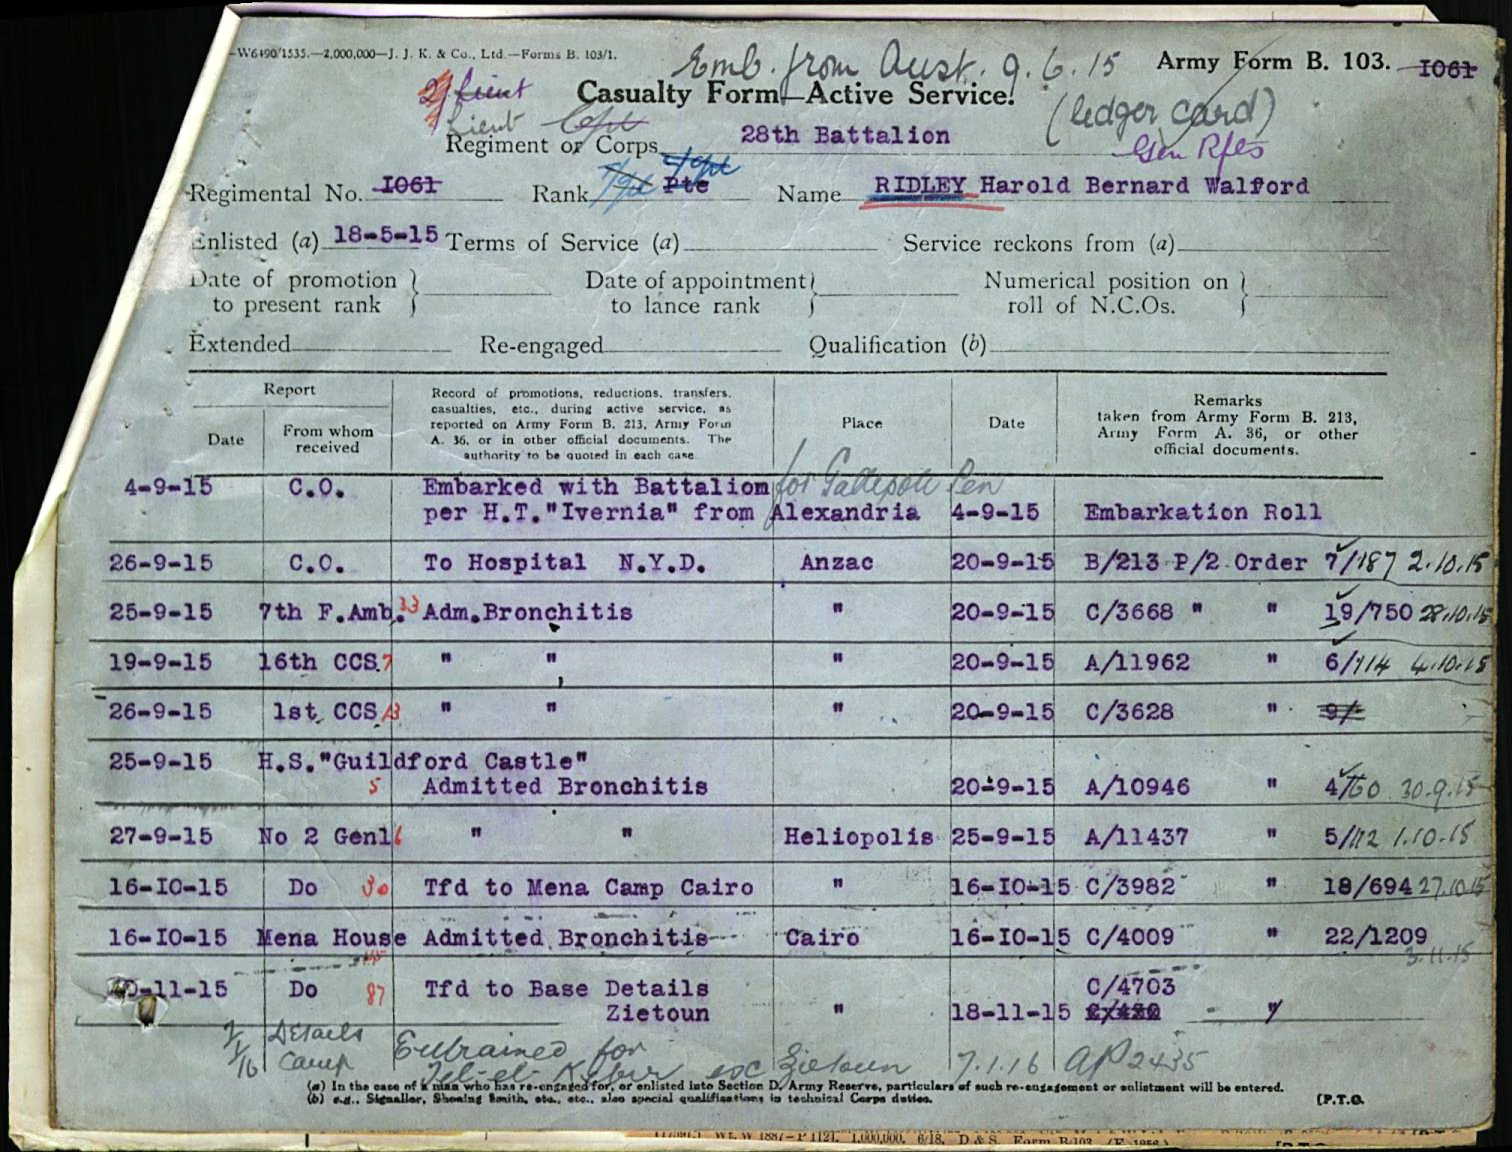 W6490/1535.—2,000,000—J. J. K. & Co., Ltd.—Forms B. 103/1.
Emb. from Aust. 9.6.15
Army Form B. 103. 1061
2/Lieut
Casualty Form—Active Service.
(ledger card)
Lieut Cpl
Regiment or Corps 28th Battalion
Gen Rfcs
Regimental No. 1061 Rank Pte Name RIDLEY Harold Bernard Walford
Enlisted (a) 18-5-15 Terms of Service (a) Service reckons from (a)
Date of promotion to present rank } Date of appointment to lance rank } Numerical position on roll of N.C.Os. }
Extended Re-engaged Qualification (b)
Report
Date
From whom received
Record of promotions, reductions, transfers,
casualties, etc., during active service, as
reported on Army Form B. 213, Army Form
A. 36, or in other official documents. The
authority to be quoted in each case.
Place
Date
Remarks
taken from Army Form B. 213,
Army Form A. 36, or other
official documents.
4-9-15 C.O. Embarked with Battaliom for Gallipoli Pen
per H.T."Ivernia" from Alexandria 4-9-15 Embarkation Roll
26-9-15 C.O. To Hospital N.Y.D. Anzac 20-9-15 B/213 P/2 Order 7/187 2.10.15
25-9-15 7th F.Amb. 33 Adm.Bronchitis " 20-9-15 C/3668 " " 19/750 28.10.15
19-9-15 16th CCS. 7 " " " 20-9-15 A/11962 " 6/114 4.10.15
26-9-15 1st CCS 13 " " " 20-9-15 C/3628 " 9/
25-9-15 H.S."Guildford Castle"
5 Admitted Bronchitis 20-9-15 A/10946 " 4/60 30.9.15
27-9-15 No 2 Genl 6 " " Heliopolis 25-9-15 A/11437 " 5/112 1.10.15
16-IO-15 Do 30 Tfd to Mena Camp Cairo " 16-IO-15 C/3982 " 18/694 27.10.15
16-IO-15 Mena House Admitted Bronchitis Cairo 16-IO-15 C/4009 " 22/1209
3.11.15
-11-15 Do 87 Tfd to Base Details C/4703
Zietoun " 18-11-15 "
7/1/16 Details Camp Entrained for
Tel-el-Kebir exc Zietoun 7.1.16 AP 2435
(a) In the case of a man who has re-engaged for, or enlisted into Section D, Army Reserve, particulars of such re-engagement or enlistment will be entered.
(b) e.g., Signaller, Shoeing Smith, etc., etc., also special qualifications in technical Corps duties.
[P.T.O.
Wt. W 1887—P 1121. 1,000,000. 6/18. D & S. Form B/103